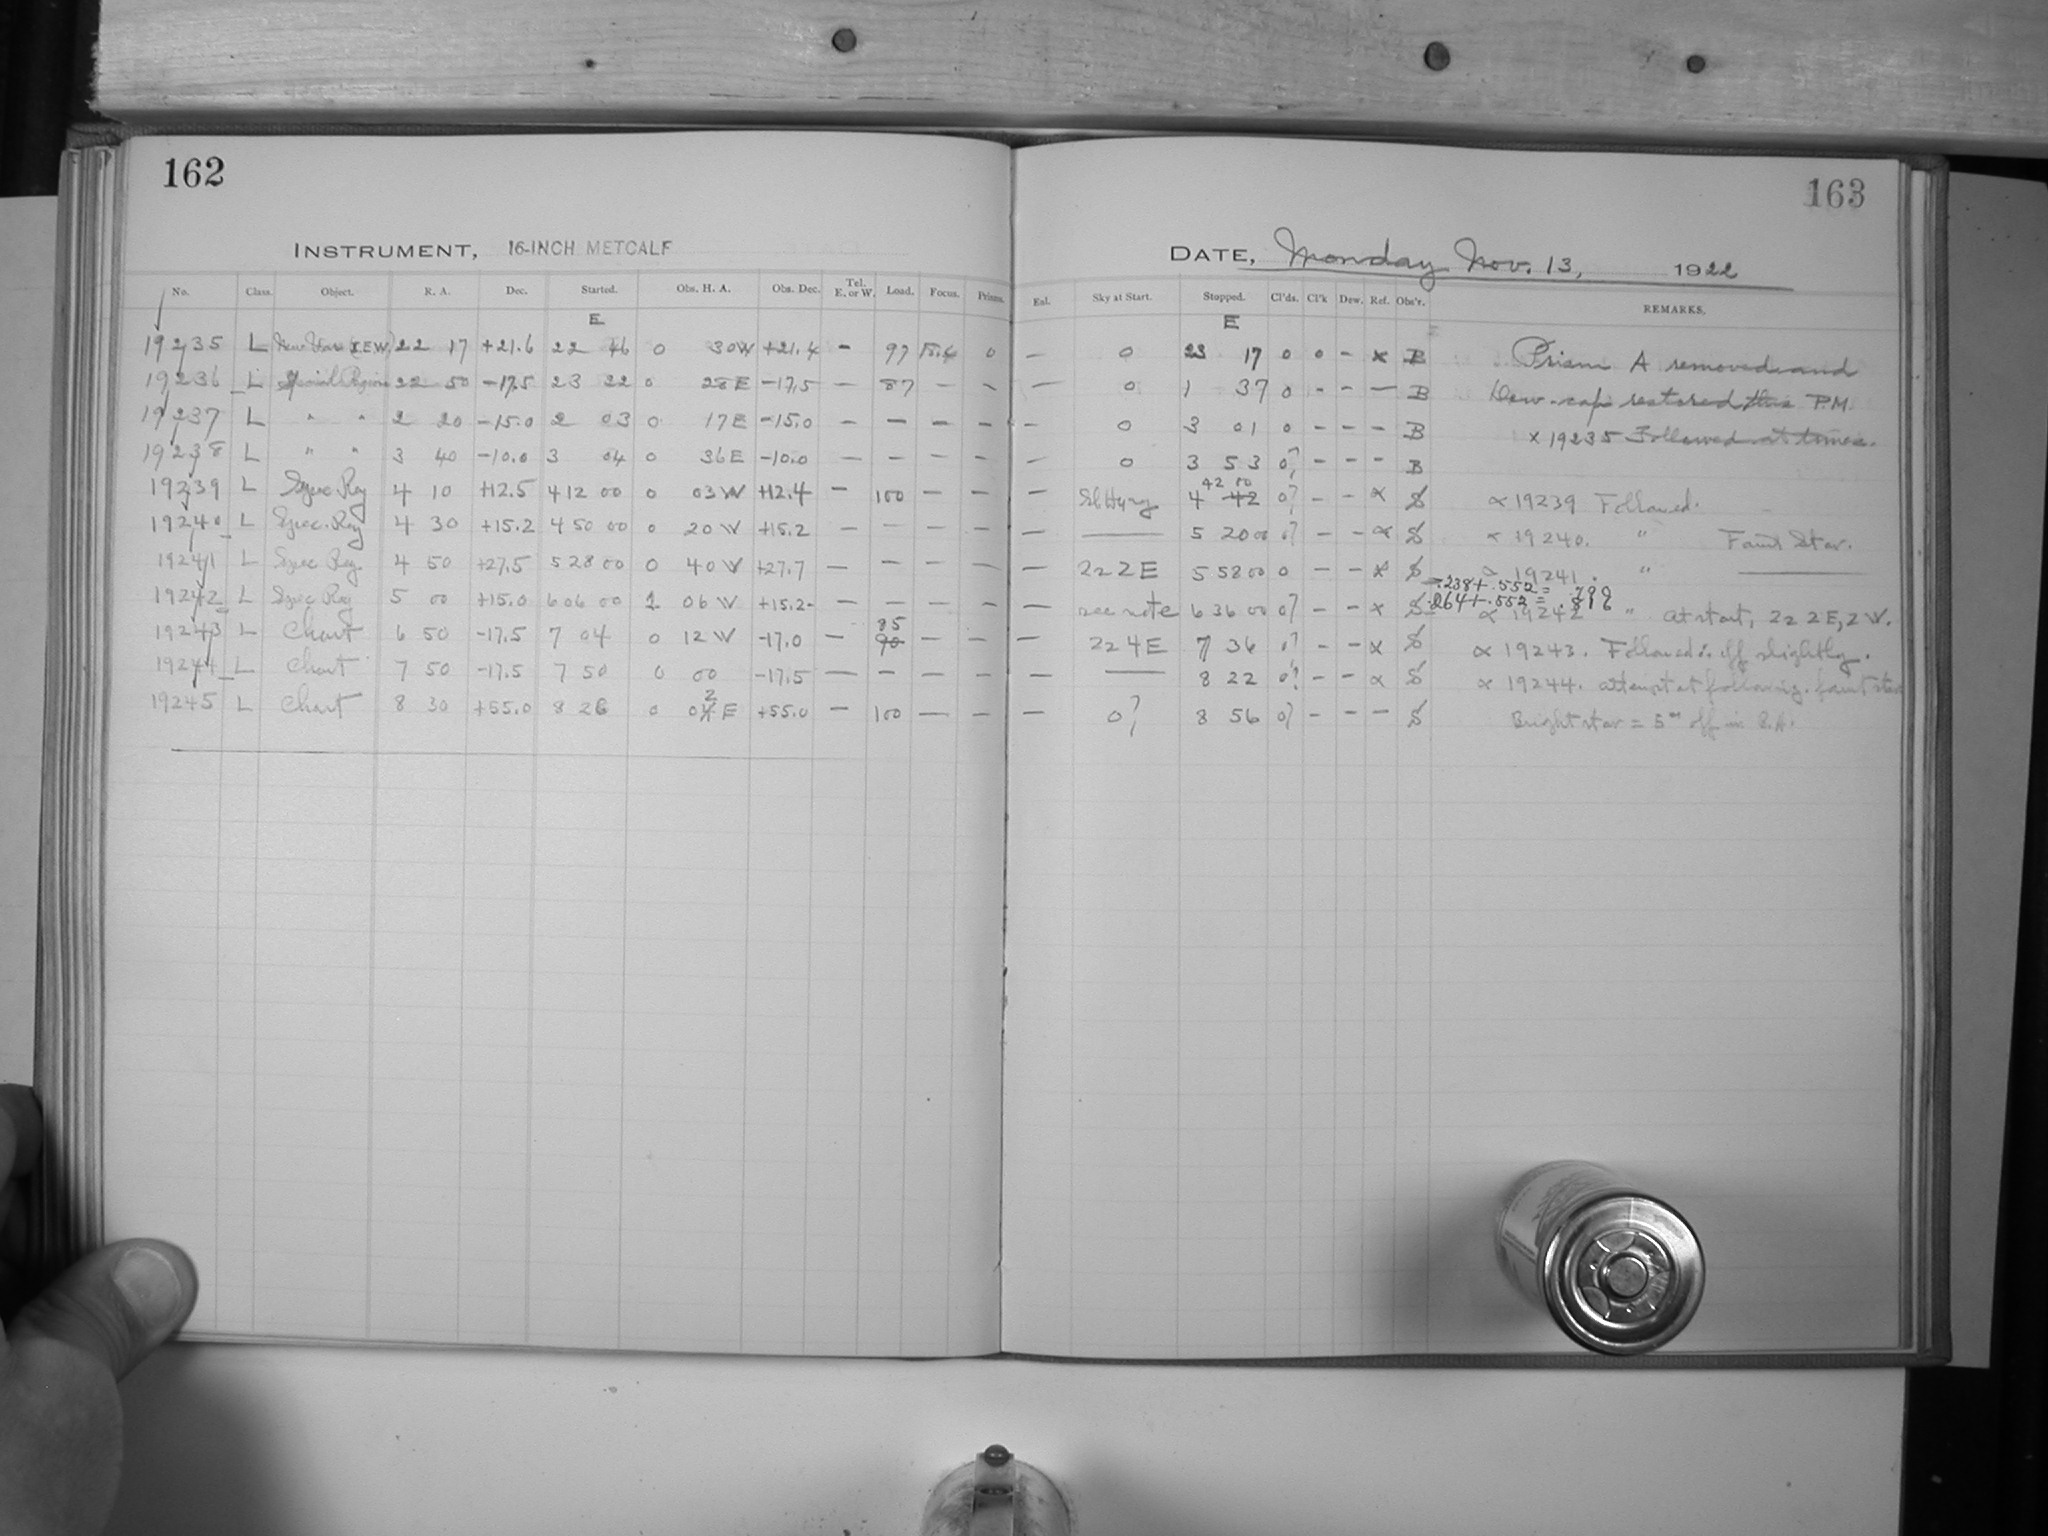 162
163
INSTRUMENT, 16-INCH METCALF
DATE, Monday Nov. 13, 1922
No. Class. Object. R. A. Dec. Started. Obs. H. A. Obs. Dec. Tel. E. or W. Load. Focus. Prism. Exl. Sky at Start. Stopped. Cl'ds. Cl'k Dew. Ref. Obs'r. REMARKS.
E E
19235 L 22 17 +21.6 22 46 0 30W +21.4 – 97 0 – 0 23 17 0 0 – x B Prism A removed and
19236 L Special Region 22 50 -17.5 23 22 0 28E -17.5 – 87 – – — 0 1 37 0 - - – B Dew-cap restored this P.M.
19237 L " " 2 20 -15.0 2 03 0 17E -15.0 – – – – – 0 3 01 0 - - - B x 19235 Followed at times.
19238 L " " 3 40 -10.0 3 04 0 36E -10.0 — – – – – 0 3 53 0? – – - B
19239 L Spec. Reg 4 10 +12.5 4 12 00 0 03 W +12.4 – 100 – – – 4 42 42 00 0? – – α S α 19239 Followed.
19240 L Spec. Reg 4 30 +15.2 4 50 00 0 20 W +15.2 – – – – — —— 5 20 00 0? – – α S α 19240. " Faint Star.
19241 L Spec Reg. 4 50 +27.5 5 28 00 0 40 W +27.7 – – – – – 2z 2E 5 58 00 0 – – x S α 19241. " ——
.238+.552=
.264+.552=
19242 L Spec Reg 5 00 +15.0 6 06 00 1 06 W +15.2 – – – – – see note 6 36 00 0? – – x S α 19242 " At start, 2z 2E, 2W.
19243 L Chart 6 50 -17.5 7 04 0 12 W -17.0 – 85 90 – – – 2z 4E 7 36 0? – – x S α 19243. Followed: off slightly.
19244 L Chart 7 50 -17.5 7 50 0 00 -17.5 – – – – – —— 8 22 0? – – α S α 19244. attempt at following. faint star
19245 L Chart 8 30 +55.0 8 26 0 02 E +55.0 – 100 — – – 0? 8 56 0? – – – S Bright star = 5m off in R.A.